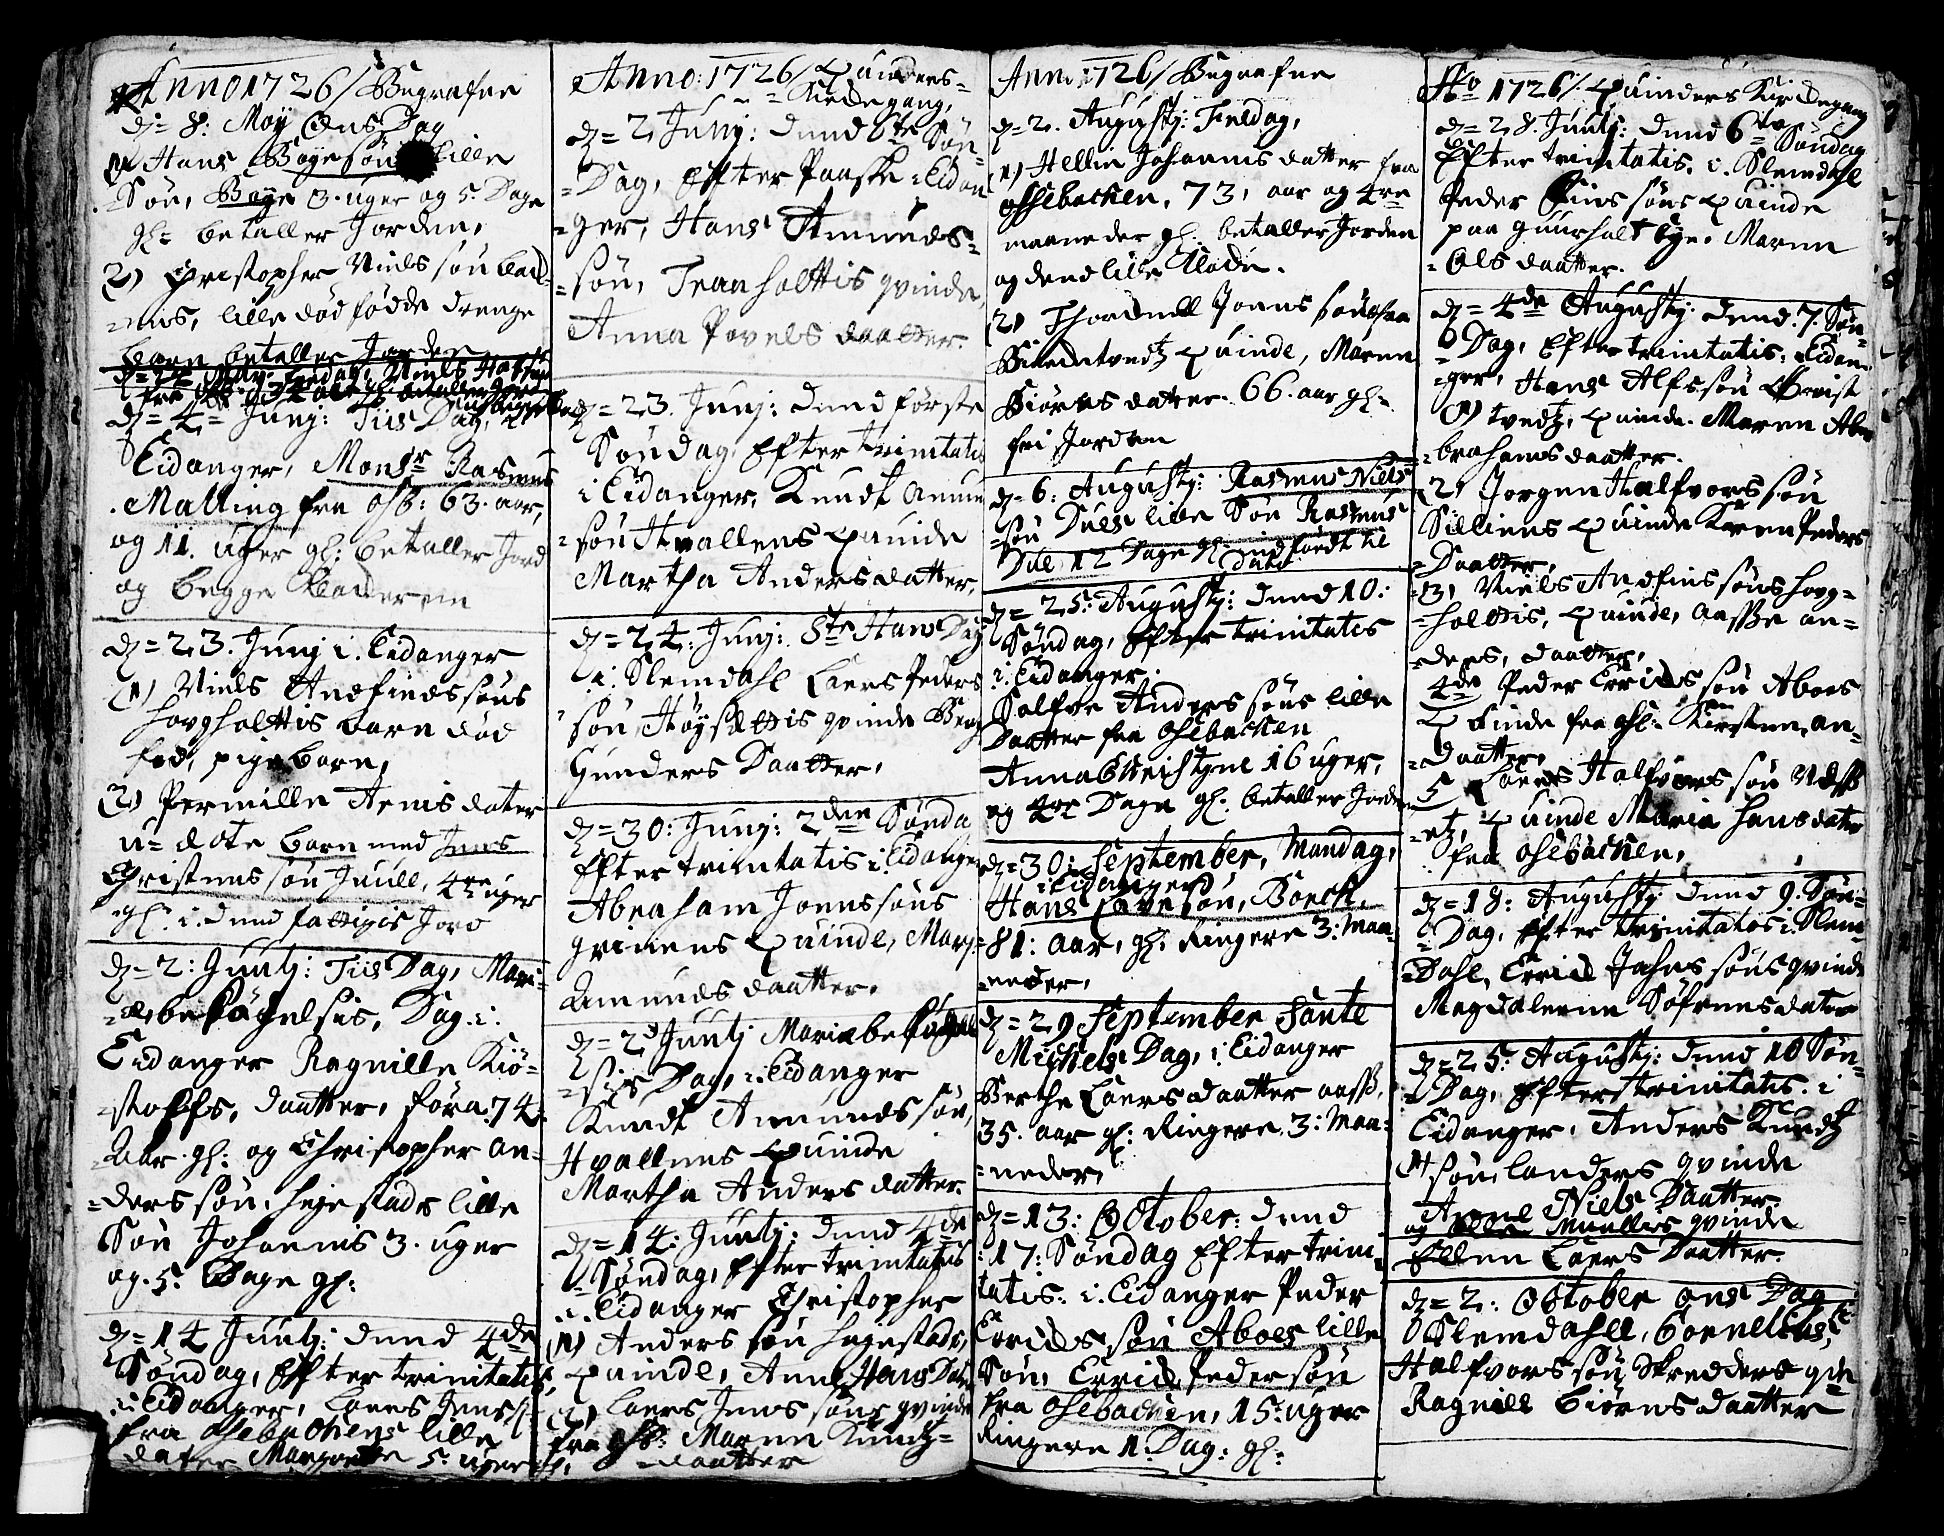 Anno 1726/ Begrafne
dz= 8: Maÿ Ons Dag
1) Hans Boÿesøn lille
Søn, Boÿe 3. uger og 5. Dage
gl= betaller Jorden,
2) Christopher Niels søn
lille død fødde drenge
barn betaller Jorden
dz= 4= Junj: Tiis Dag,
Eidanger, Monsr Rasmus
Malling fra Osb: 63. aar,
og 11. uger gl: betaller Jord
og begge Klaaderne
dz= 23. Junj i. Eidanger
(1) Niels Andfindssøns
hougholttis barn død
fød, pige barn,
(2) Pernille Arnis dater
u=dete barn med Jens
Christens søn Juull, 4re uger
gl: i. dend fattigis Jord
dz= 2: Juntj: Tiis Dag, Mari=
=æ besögelsis, Dag i.
Eidanger Ragnille Kiö=
=stoffs, daatter, föra. 74.
Aar gl: og Christopher An=
=ders søn, hegestads lille
Søn Johannis 3. uger
og. 5. Dage gl:
dz= 14 Juntj: dend 4de
Søndag, Effter trinitatis,
i. Eidanger, Laers Jens s:
fra Osebachens lille
dater Margrette 5. uger gl.
Anno: 1726/ Quinders=
=Kirkegang,
dz= 2 Junj: dend 6te Søn=
=Dag, Effter Paaske i. Eidan
=ger, Hans Amunds=
=søn, Tranholttis qvinde,
Anna Povels daatter
dz= 23. Junj: dend förste
Søndag Effter trinitatis
i Eidanger, Knudt Amun
=søn Hvallens Quinde
Martha Anders datter,
dz= 24: Junj: Ste Hans Dag
i. Slemdahl Laers Peders
søn Höÿsettis qvinde
Gunders Daatter,
dz= 30: Junj: 2den Sönda
Effter trinitatis i. Eidanger
Abraham Jonssøns
grinens Quinde, Marj
Amundsdaatter.
dz= 2d Juntj Mariæ besögel
=sis Dag, i. Eidanger
Knudt Amunds søn,
Hvallens Quinde
Martha Anders datter.
dz= 14: Juntj: dend 4de
Søndag, Effter trinitatis
i. Eidanger Christopher
(1) Anders søn hegestads,
Quinde, Anne Hans Dater
(2) Laers Jens søns qvinde
fra Osb: Maren Knudtz=
daatter
Anno 1726/ Begrafne
dz= 2. Augustj: Fredag,
(1) Hellin Johannis datter fra
Osebachen, 73, aar og 4re
maaneder gl: betaller Jorden
og dend lille Klode.
(2) Thordell Joens søn fra
Quinde, Maren
Biörns datter. 66. aar gl=
fri Jorden
dz= 6: Augustj: Rasmus Niels
søn Dues lille Søn Rasmus
Due 12 Dage gl: indfördt til
Duto
dz= 25: Augustj: dend 10:
Søndag, Effter trinitatis
i. Eidanger.
Solfve Anders søns lille
Daatter fra Osebachen
Anna Christine 16 uger,
og 4re Dage gl: betaller Jorden
dz= 30: September, Mandag,
i Eidanger
Hans Lavesøn, Borch,
81: aar, gl: Ringere 3: Maa=
=neder,
dz= 29 September Sante
Michels Dag, i Eidanger
Berthe Laersdaatter aass,
35. aar gl: Ringere 3: Maa=
=neder,
dz= 13: October: dend
17: Søndag Effter trini=
tatis: i. Eidanger Peder
Errichs søn Aboes lille
Søn, Errich Pedersøn
fra Osebachen, 15. uger
Ringere 1. Dag: gl:
Ao 1726/. Quinders Kirkegang
dz= 28. Juntj: dend 6te Søndag
Effter trinitatis. i. Slemdahl
Peder søns Quinde
paa guurholt Eÿe, Maren
=Ols daatter.
dz= 4de Augustj: dend. 7. Søn
=Dag, Effter trinitatis: i Eidan
=ger, Hans Alfssøn
(1) tvedtz, Quinde. Maren Abra
=brahams daatter.
(2) Jørgen Halfvors søn
Silliens Quinde Karen Peders
=Daatter,
(3) Niels Andfins søns houg=
=holttis, Quinde, Aasse An=
=ders, daatter,
4de Peder Erricks søn Aboes
Quinde fra Osb= Kirsten An=
=daatter,
5 Laers Halfvors søn
Quinde Maria hansdater
fra Osebachen,
dz= 18: Augustj dend 9. Søn=
=Dag, Effter trinitatis i Slem=
=Dahl, Errich Jahns søns qvinde
Magdalena Söfrens dater
dz= 25: Augustj: dend 10 Søn=
=Dag, Effter trinitatis. i
Eidanger. Anders Knudtz
(1) søn, landers qvinde
Anne Niels Daatter
og Muellers qvinde
Ellen Laers Daatter.
dz= 2: October ons Dag
Slemdahll, Cornelius,
Halfvors søn Skredders qvin
Ragnill Biörns daatter